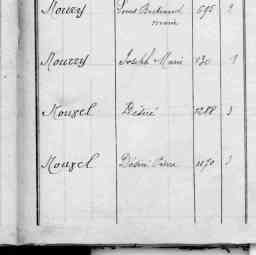 Mourey Louis Bertrand 695 9
Marie
Mourey Joseph Marie 130 9
Mouzel Désiré 1288 3
Mouzel Désiré Pierre 1170 3